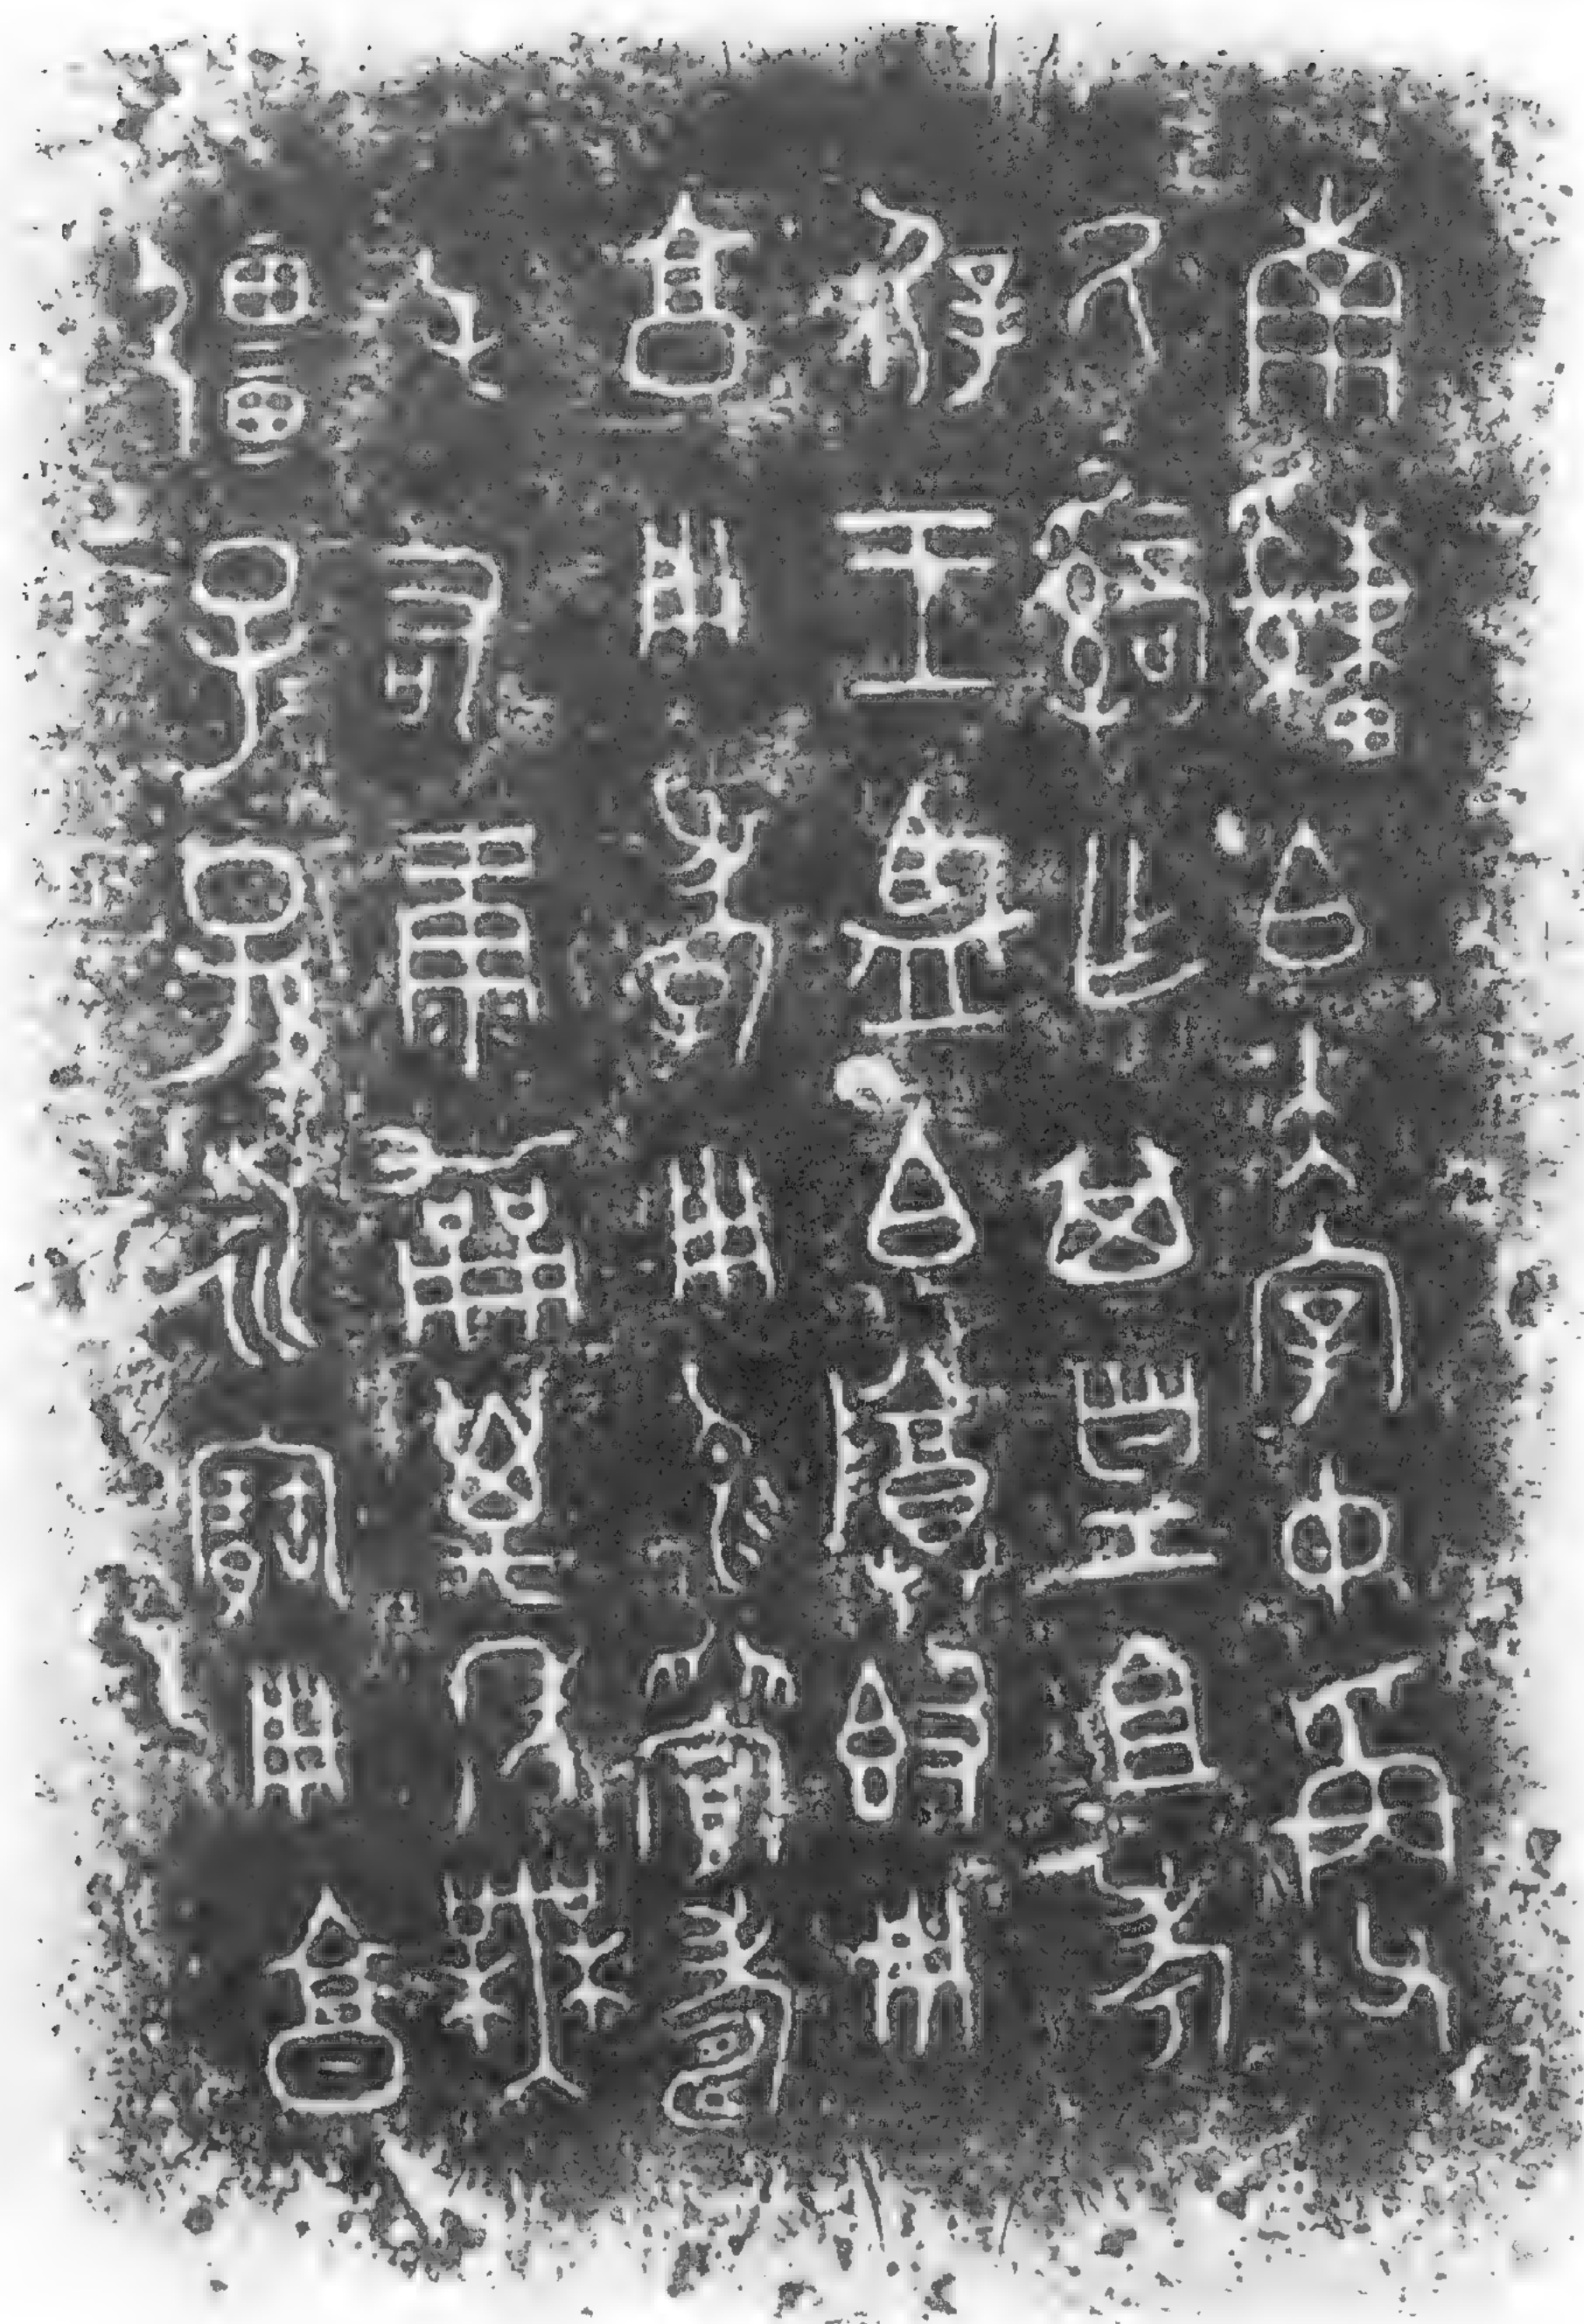 南䌛白大宰中爯父
厥辭乍其皇且考
屖王監白尊簋用
享用孝用易眉壽
屯右康萬年無
疆子子孫孫永寶用享